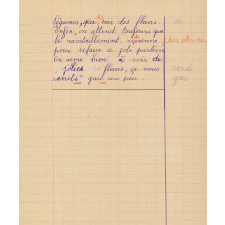 légumes, que voir des fleurs.
Enfin, on attend toujours que
le ravitaillement reprenne
pour refaire ce joli parterre
On aime bien à voir de
jolies fleurs, ça nous
rends gais un peu.
rend
gai